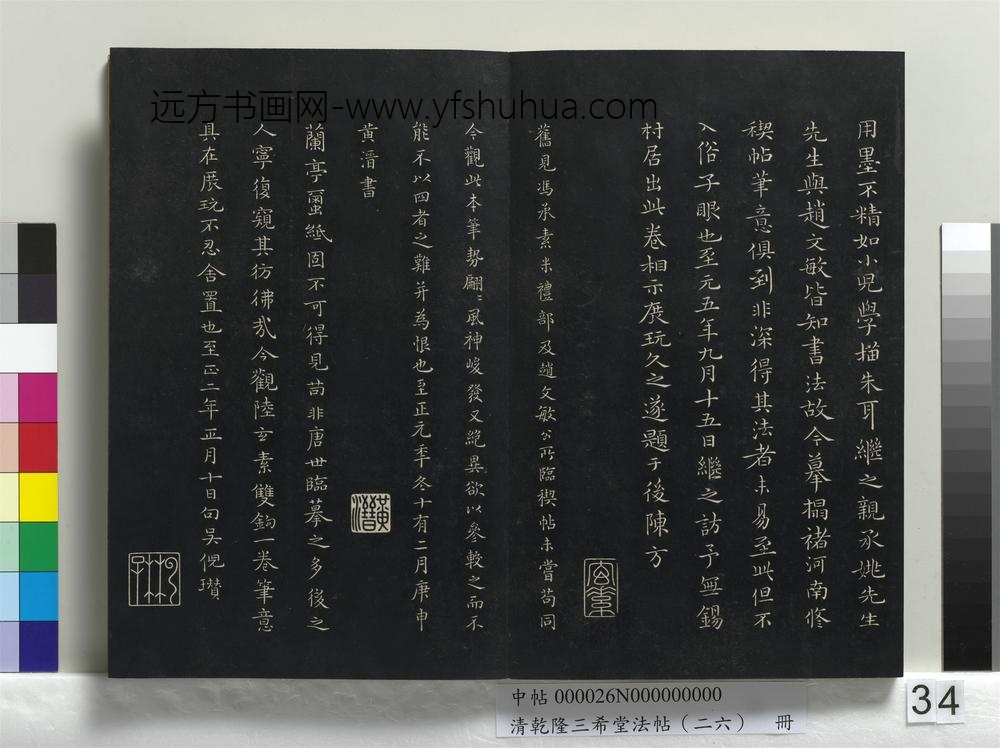 远方书画网-www.yfshuhua.com
用墨不精如小児學描朱耳繼之親承姚先生
先生與趙文敏皆知書法故今摹搨褚河南修
禊帖筆意俱到非深得其法者未易至此但不
入俗子眼也至元五年九月十五日繼之訪予無錫
村居出此卷相示展玩久之遂題于後陳方
舊見馮承素米禮部及趙文敏公所臨禊帖未嘗苟同
今觀此本筆勢翩〻風神峻發又絶異欲以參較之而不
能不以四者之難并為恨也至正元年冬十有二月庚申
黃溍書
黃溍
蘭亭蠒紙固不可得見苟非唐世臨摹之多後之
人寧復窺其彷彿哉今觀陸玄素雙鉤一卷筆意
具在展玩不忍舍置也至正二年正月十日句吳倪瓚
中帖 000026N000000000
清乾隆三希堂法帖（二六） 冊
34